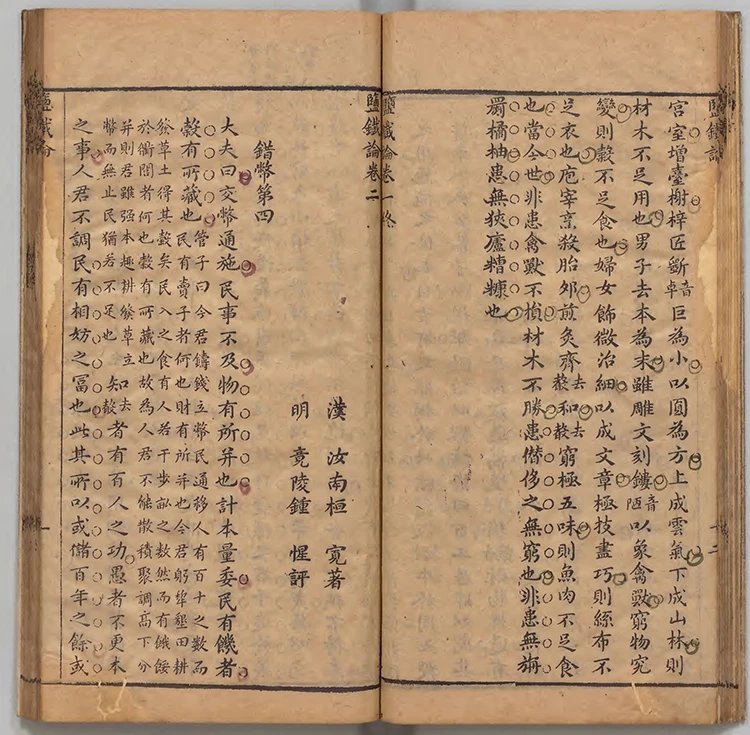 鹽鐵論
二
宮室增臺榭梓匠斲音卓巨為小以圓為方上成雲氣下成山林則
材木不足用也男子去本為末雖雕文刻鏤音陋以象禽獸窮物究
變則穀不足食也婦女飾微治細以成文章極技盡巧則絲布不
足衣也庖宰烹殺胎卵煎炙齊去聲和去聲窮極五味則魚肉不足食
也當今世非患禽獸不損材木不勝患僭侈之無窮也非患無旃
罽橘柚患無狹廬糟糠也
鹽鐵論卷一終
鹽鐵論卷二
漢 汝南桓 寬著
明 竟陵鍾 惺評
錯幣第四
大夫曰交幣通施民事不及物有所并也計本量委民有饑者
穀有所藏也管子曰今君鑄錢立幣民通移人有百十之數而民有賣子者何也財有所并也今君躬犂墾田耕
發草土得其穀矣民人之食有人若干步畝之數然而有餓餒於衢閭者何也穀有所藏也故為人君不能散積聚調高下分
并則君雖强本趣耕發草立幣而無止民猶若不足也知去聲者有百人之功愚者不更本
之事人君不調民有相妨之富也此其所以或儲百年之餘或
鹽鐵論